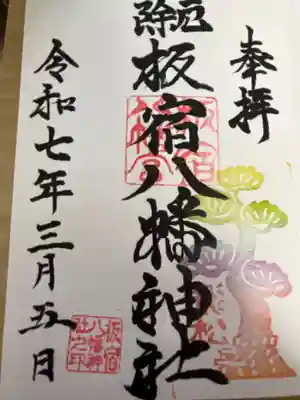 奉拝
厄除
板宿八幡神社
令和七年三月五日
板宿
八幡神
社之印